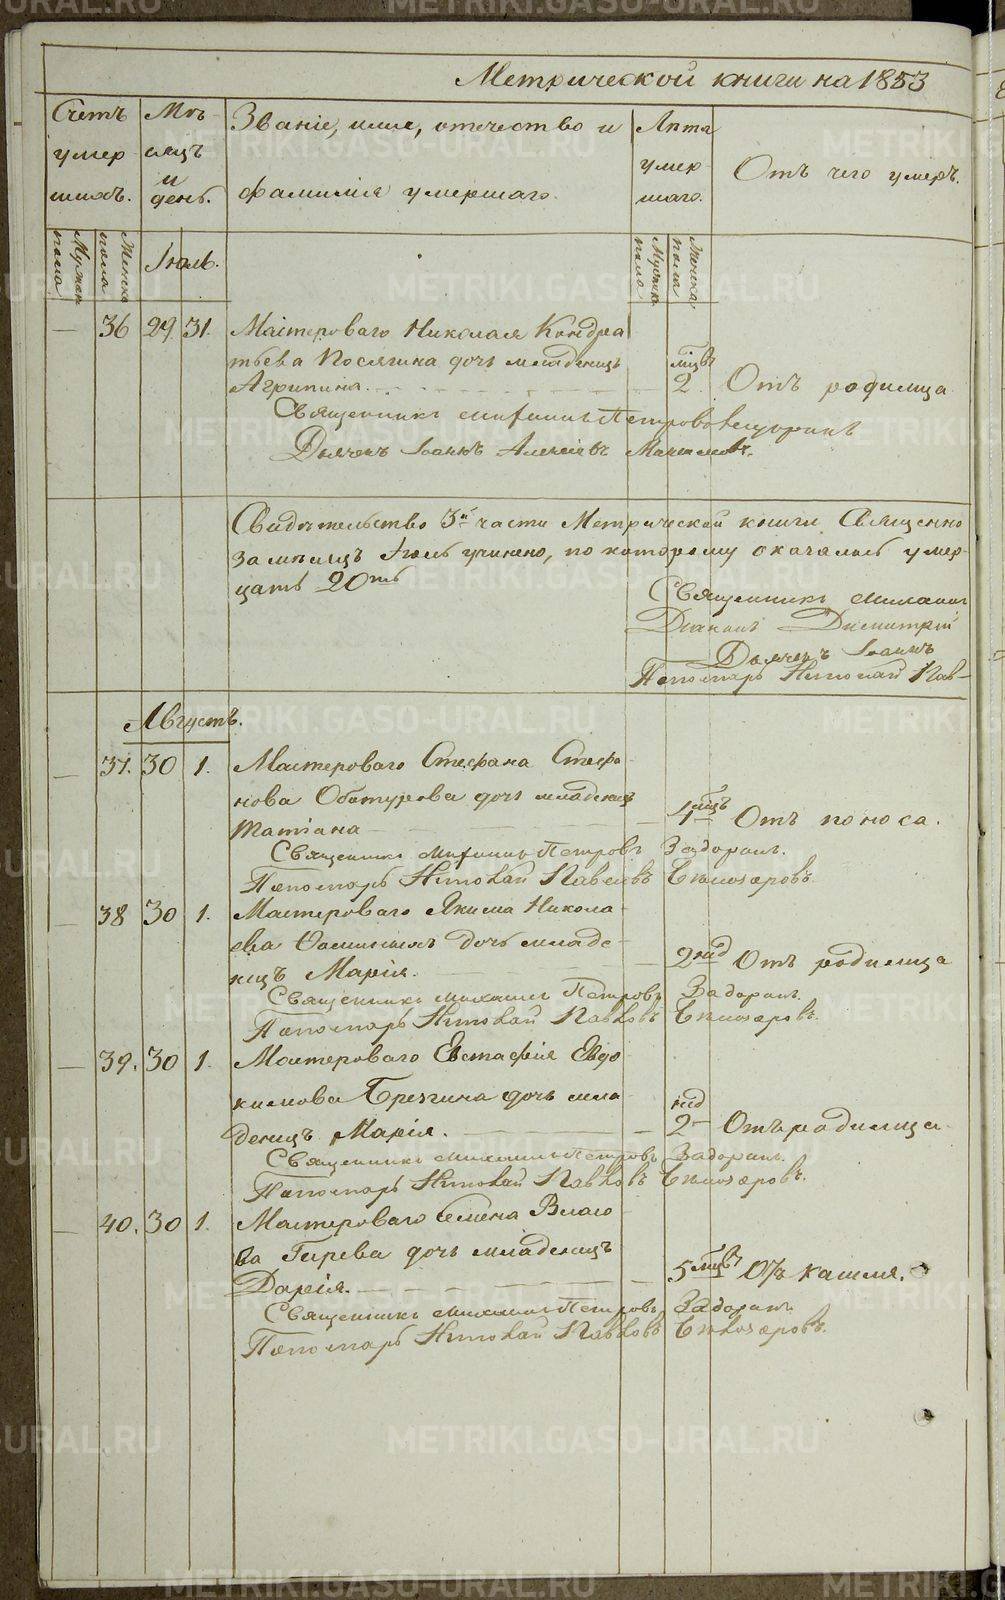 Метрической книги на 1853
Счетъ умершихъ.
Мѣсяцъ и день.
Званіе, имя, отчество и фамилія умершаго.
Лѣта умершаго.
Отъ чего умеръ.
Мужеска пола
Женска пола
Іюль.
Мужеска пола
Женска пола
— 36 29 31. Мастероваго Николая Кондра
тьева дочь младенецъ мцъ
Агрипина. — 2 Отъ родимца
Священникъ Михаилъ Петровъ
Дьячекъ Іоаннъ Алексѣевъ
Свидѣтельство 3й части Метрической книги Священно
за мѣсяцъ Іюль учинено, по которому оказалось умер-
шихъ 20ть
Священникъ Михаилъ
Діаконъ Димитрій
Дьячекъ Іоаннъ
Пономарь Николай Пав-
Августъ.
— 37. 30 1. Мастероваго Стефана Стефа-
нова Обатурова дочь младенецъ
Татіана — 1 мцъ Отъ поноса.
Священникъ Михаилъ Петровъ Задоринъ.
Пономарь Николай Павловъ Бѣлозеровъ.
— 38 30 1. Мастероваго Якима Никола-
ева дочь младе-
нецъ Марія. — 2 нед Отъ родимца
Священникъ Михаилъ Петровъ Задоринъ.
Пономарь Николай Павловъ Бѣлозеровъ.
— 39. 30 1. Мастероваго Евстафія Евдо
кимова Брезгина дочь мла-
денецъ Марія. — 2 нед Отъ родимца
Священникъ Михаилъ Петровъ Задоринъ.
Пономарь Николай Павловъ Бѣлозеровъ.
— 40. 30 1. Мастероваго Семена Власо
ва Гирева дочь младенецъ
Дарія. — 5 мцвъ Отъ кашля.
Священникъ Михаилъ Петровъ Задоринъ.
Пономарь Николай Павловъ Бѣлозеровъ.
METRIKI.GASO-URAL.RU